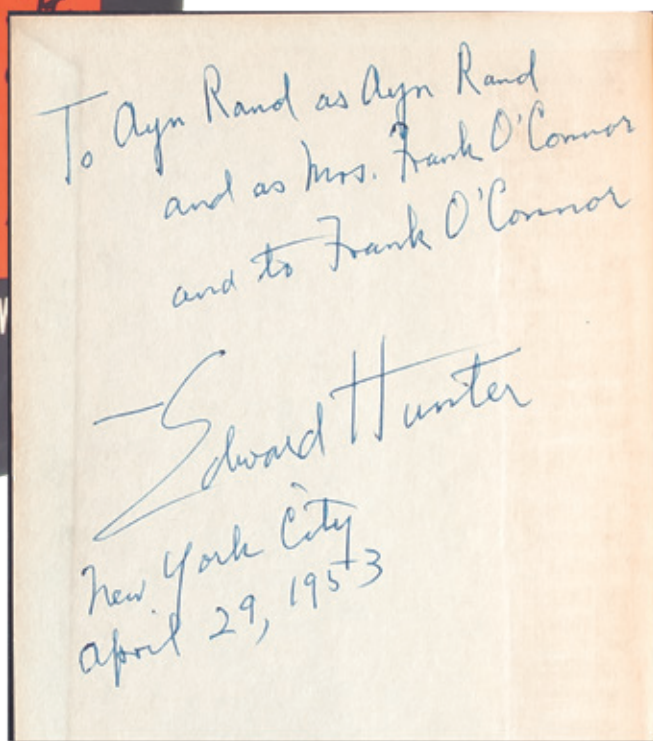 To Ayn Rand as Ayn Rand
and as Mrs. Frank O'Connor
and to Frank O'Connor
— Edward Hunter
New York City
April 29, 1953